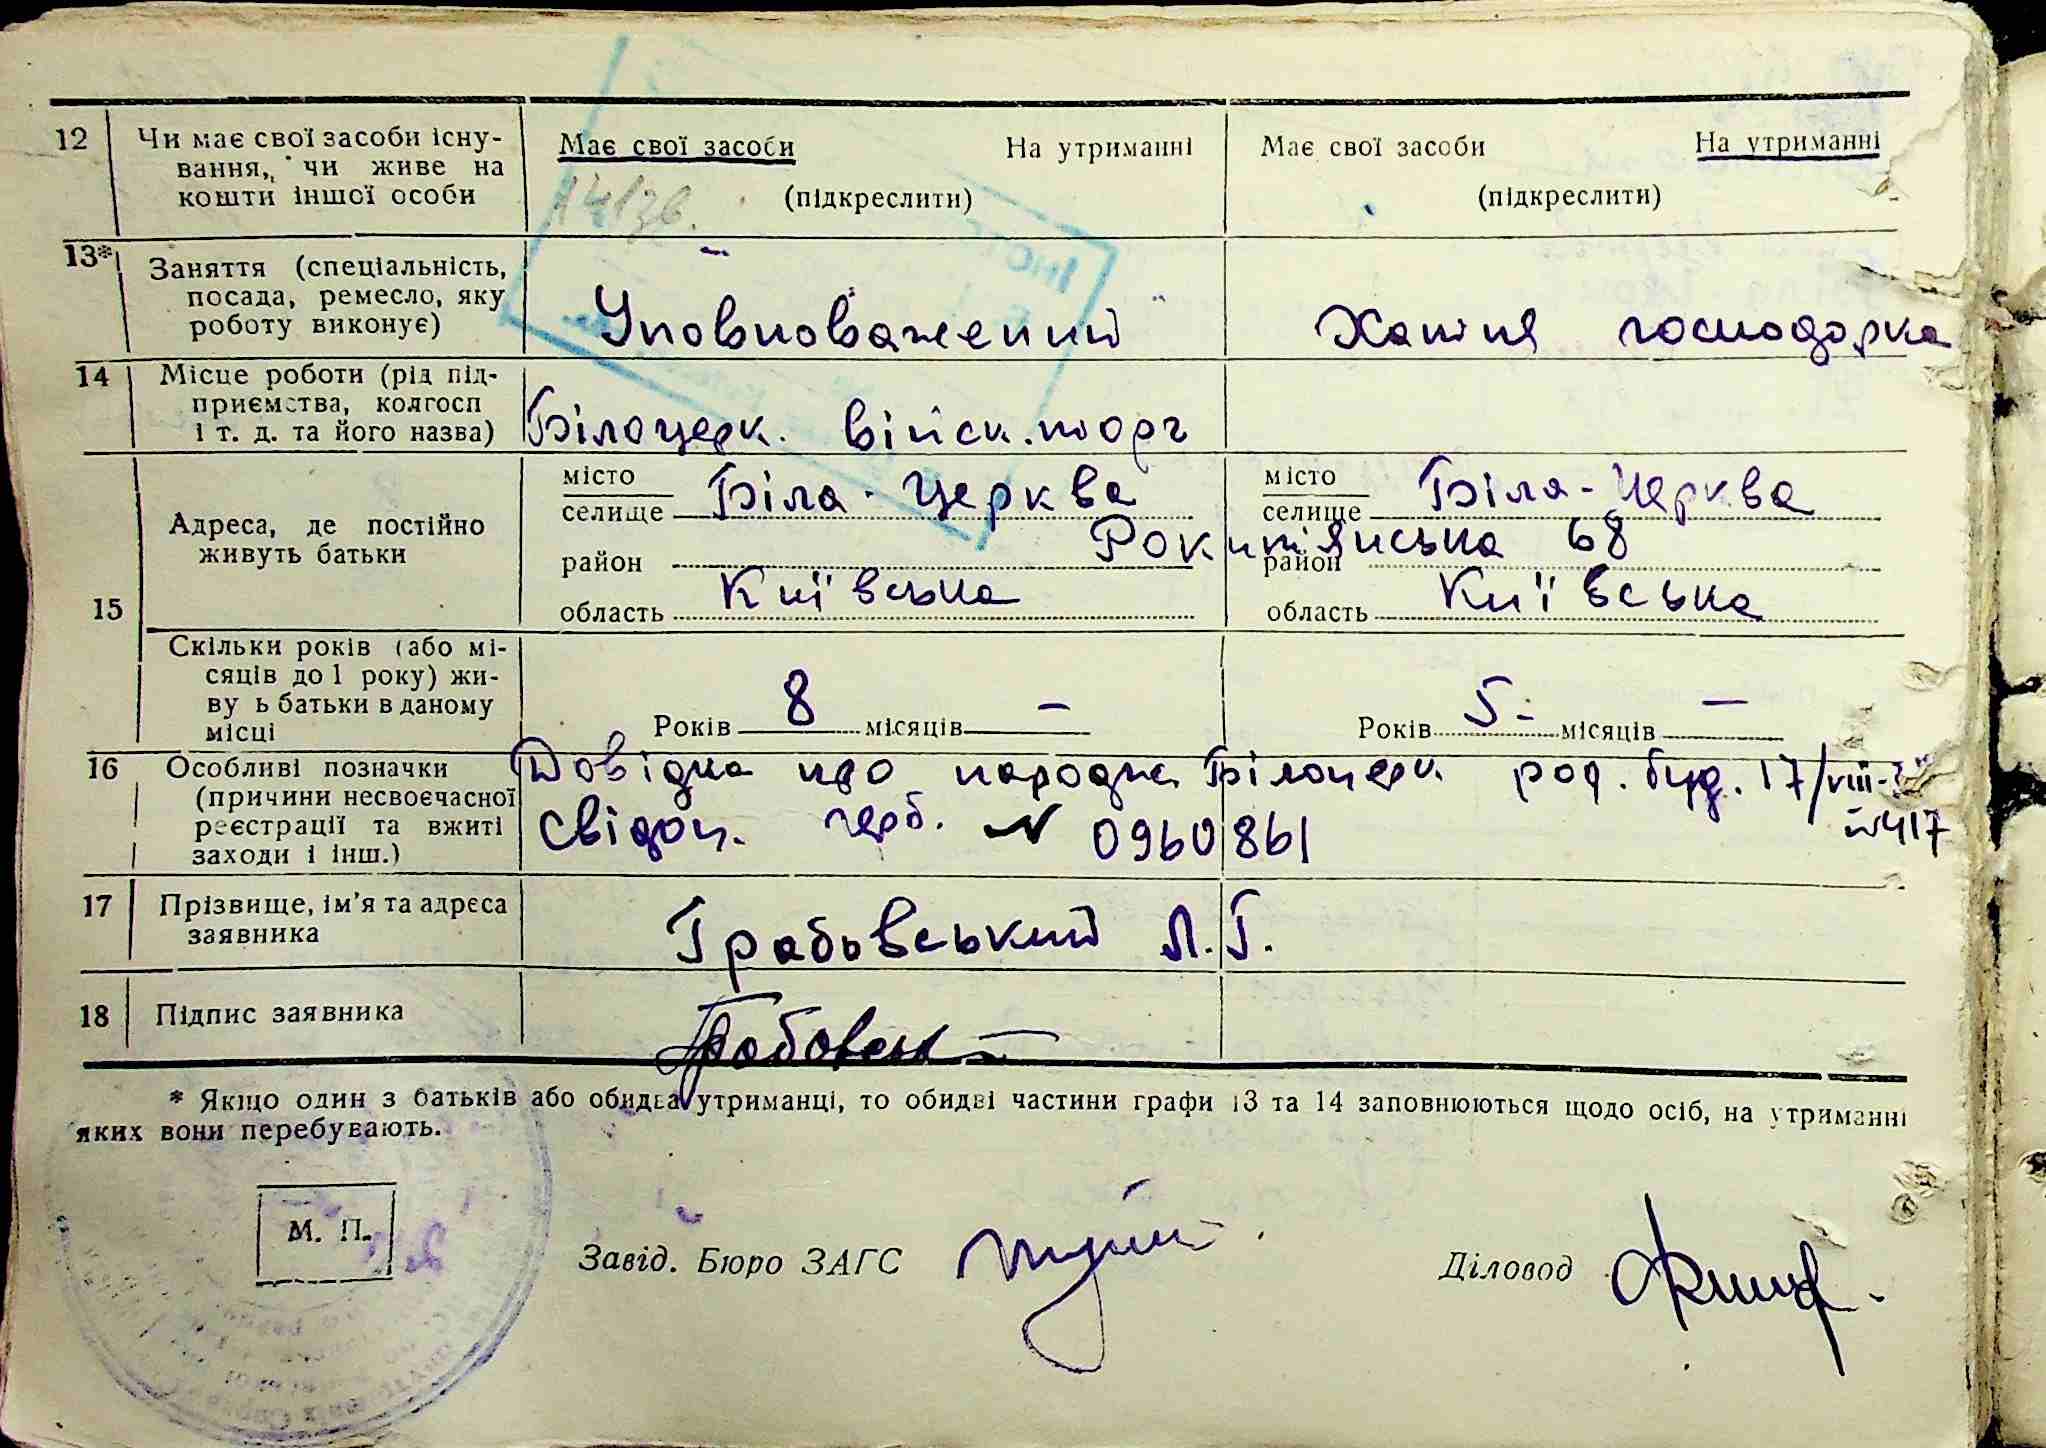 12 Чи має свої засоби існу- Має свої засоби На утриманні Має свої засоби На утриманні
вання, чи живе на
кошти іншої особи (підкреслити) (підкреслити)
13* Заняття (спеціальність,
посада, ремесло, яку Уповноважений Хатня господарка
роботу виконує)
14 Місце роботи (рід під-
приємства, колгосп
і т. д. та його назва) Білоцерк. військ.торг
місто Біла-Церква місто Біла-Церква
селище селище
15 Адреса, де постійно
живуть батьки Рокитянська 68
район район
область Київська область Київська
Скільки років (або мі-
сяців до 1 року) жи-
ву ь батьки в даному
місці Років 8 місяців — Років 5 - місяців —
16 Особливі позначки Довідка про народж. Білоцерк. род. буд. 17/VIII-
(причини несвоєчасної
реєстрації та вжиті Свідоц. герб. N 0960861 №417
заходи і інш.)
17 Прізвище, ім’я та адреса
заявника Грабовський Л.Г.
18 Підпис заявника
* Якщо один з батьків або обидва утриманці, то обидві частини графи 13 та 14 заповнюються щодо осіб, на утриманні
яких вони перебувають.
М. П.
Завід. Бюро ЗАГС Діловод